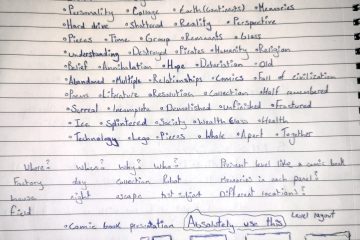 • Personality • Collage • Earth (Continents) • Memories
• Hard drive • Shattered • Reality • Perspective
• Pieces • Time • Group • Remnants • Glass
• understanding • Destroyed • Pirates • Humanity • Religion
• Belief • Annihilation • Hope • Distortion • Old
• Abandoned • Multiple • Relationships • Comics • Fall of civilization
• Poems • Literature • Resolution • Collection • Half remembered
• Surreal • Incomplete • Demolished • Unfinished • Fractured
• Ice • Splintered • Society • Wealth Class • Health
• Technology • Lego • Pieces • Whole • Apart • Together
Where? When? Why? Who? Present level like a comic book
Factory day collection Robot Memories in each panel?
house night escape test subject Different locations?
field
Level layout
• Comic book presentation Absolutely use this